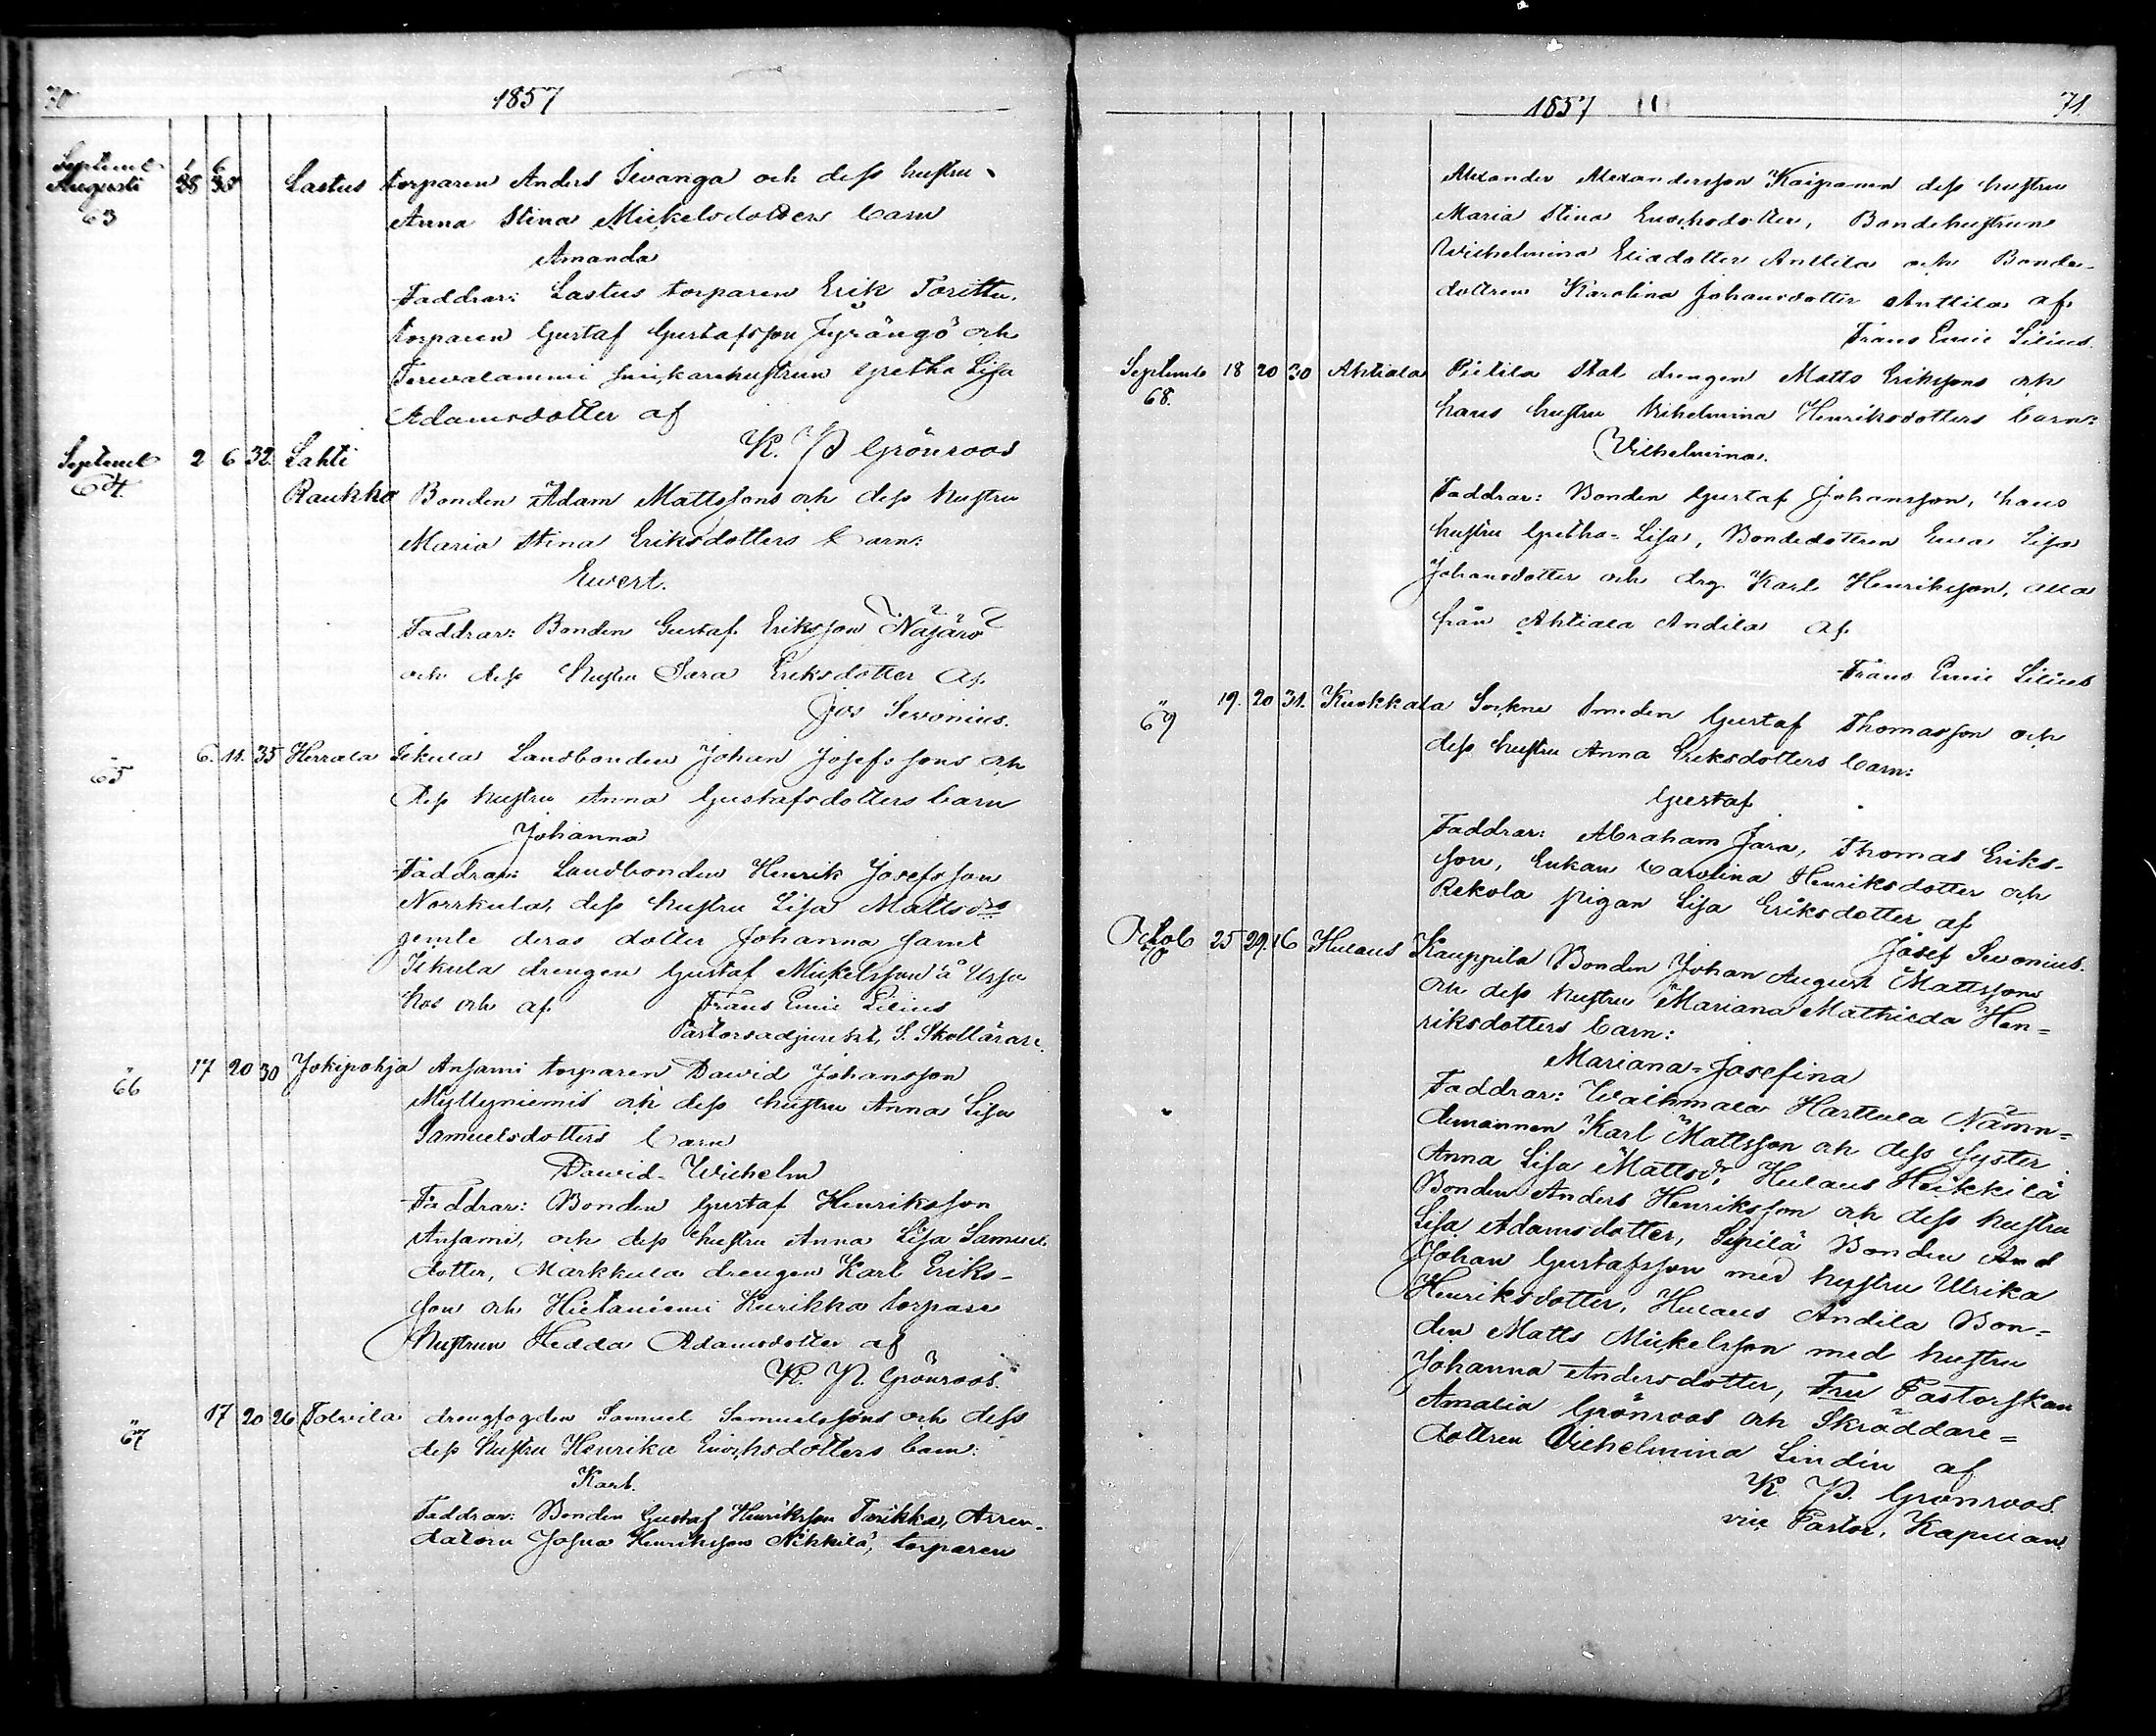 70
1857
Septemb
Augusti 28 30 Lastus torparen Anders Tevanga och dess hustru
1 6
63 Anna Stina Mickelsdotters barn
Amanda
Faddrar: Lastus torparen Erik Torittu,
torparen Gustaf Gustafsson Jyrängö och
Terwalammi hustrun Gretha Lisa
Adamsdotter af
K. P. Grönroos
Septemb 2 6 32 Lahti
64. Raukka Bonden Adam Mattssons och dess hustru
Maria Stina Eriksdotters barn:
Ewert.
Faddrar: Bonden Gustaf Eriksson Näjärö
och dess hustru Sara Eriksdotter af
Jos Sevonius.
" 6. 11. 35 Herrala Iskula Landbonden Johan Josefssons och
65 dess hustru Anna Gustafsdotters barn
Johanna
Faddrar: Landbonden Henrik Josefsson
Norrkula, dess hustru Lisa Mattsdr
jemte deras dotter Johanna samt
Iskula drengen Gustaf Mickelsson å
hos och af Frans Emil Lilius
Pastorsadjunkt, S. Skollärare.
" 17 20 30 Jokipohja Ansami torparen Dawid Johansson
66 Myllyniemis och dess hustru Anna Lisa
Samuelsdotters barn
Dawid-Wilhelm
Faddrar: Bonden Gustaf Henriksson
Ansami, och dess hustru Anna Lisa Samuels
dotter, Markkula drengen Karl Eriks-
son och Hietaniemi Kurikka torpare
hustrun Hedda Adamsdotter af
K. P. Grönroos.
" 17 20 26 Tolvila drengfogden Samuel Samuelssons och dess
67 dess hustru Henrika Enochsdotters barn:
Karl.
Faddrar: Bonden Gustaf Henriksson Tarikka, Arren-
datorn Josua Henriksson Nikkilä, torparen
1857
71.
Alexander Alexandersson Kaipanen dess hustru
Maria Stina Enochsdotter, Bondehustrun
Wilhelmina Eliadotter Anttila och Bonde-
dottren Karolina Johansdotter Anttila af
Frans Emil Lilius.
Septemb 18 20 30 Ahtiala Pietila Stat drengen Matts Erikssons och
68. hans hustru Vilhelmina Henriksdotters barn:
Vilhelmina.
Faddrar: Bonden Gustaf Johansson, hans
hustru Gretha-Lisa, Bondedottren Ewa Lisa
Johansdotter och drg Karl Henriksson, alla
från Ahtiala Andila af
Frans Emil Lilius
" 19. 20 31. Kuokkala Sockne Smeden Gustaf Thomasson och
69 dess hustru Anna Eriksdotters barn:
Gustaf
Faddrar: Abraham Jara, Thomas Eriks-
son, Enkan Carolina Henriksdotter och
Rekola pigan Lisa Eriksdotter af
Josef Sevonius.
Octob 25 29. 16 Hulaus Kauppila Bonden Johan August Mattssons
70 och dess hustru Mariana Mathilda Hen=
riksdotters barn:
Mariana-Josefina
Faddrar: Waihmala Harttula Nämn=
demannen Karl Mattsson och dess syster
Anna Lisa Mattsdr, Hulaus Heikkilä
Bonden Anders Henriksson och dess hustru
Lisa Adamsdotter, Sipilä Bonden And
Johan Gustafsson med hustru Ulrika
Henriksdotter, Hulaus Andila Bon=
den Matts Mickelsson med hustru
Johanna Andersdotter, Fru Pastorskan
Amalia Grönroos och Skräddare=
dottren Vilhelmina Lindén af
K. P. Grönroos.
vice Pastor, Kapellan.